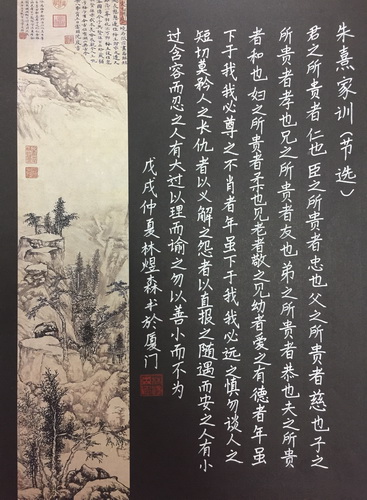 朱熹家训（节选）
君之所贵者仁也臣之所贵者忠也父之所贵者慈也子之
所贵者孝也兄之所贵者友也弟之所贵者恭也夫之所贵
者和也妇之所贵者柔也见老者敬之见幼者爱之有德者年虽
下于我我必尊之不肖者年虽下于我我必远之慎勿谈人之
短切莫矜人之长仇者以义解之怨者以直报之随遇而安之人有小
过含容而忍之人有大过以理而谕之勿以善小而不为
戊戌仲夏林煜森书於厦门